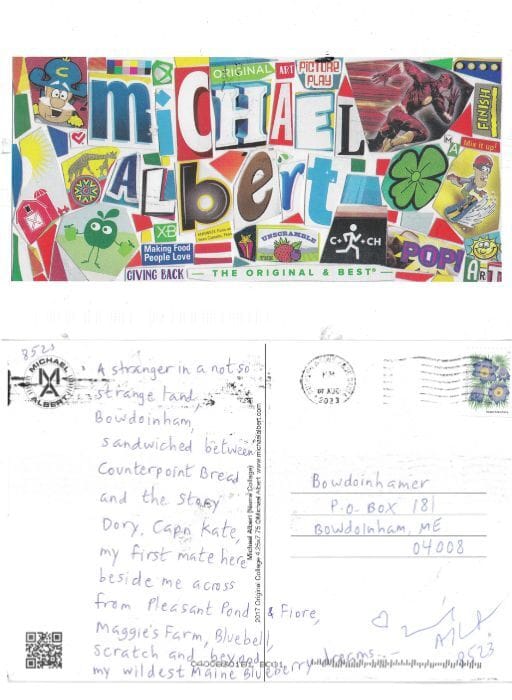 ORIGINAL
ART
PICTURE
PLAY
C
MiCHAEL
FINISH
MA
Mix it up!
ALbert
XB
Making Food
People Love
UNSCRAMBLE
THE
C CH
POP!
ART
GIVING BACK
THE ORIGINAL & BEST®
8523
MICHAEL
MA
ALBERT
A stranger in a not so
strange land,
Bowdoinham,
sandwiched between
Counterpoint Bread
and the story
Dory, Capn Kate,
my first mate here
beside me across
from Pleasant Pond & Fiore,
Maggie's Farm, Bluebell,
scratch and beyond
my wildest Maine Blueberry dreams...
Michael Albert (Name Collage)
2017 Original Collage 4.25x7.75 ©Michael Albert www.michaelalbert.com
PM
07 AUG
2023
Bowdoinhamer
P.O. BOX 181
Bowdoinham, ME
04008
8523